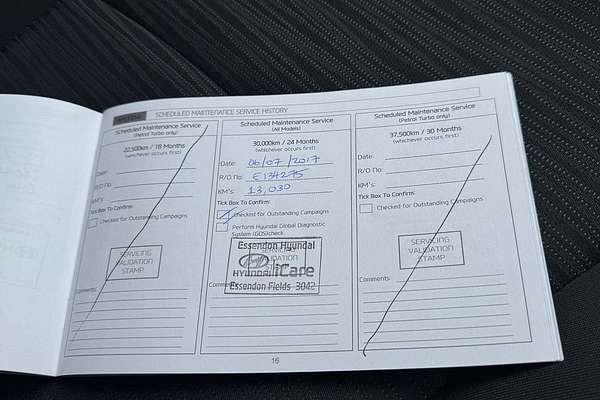 SCHEDULED MAINTENANCE SERVICE HISTORY
Scheduled Maintenance Service
(Petrol Turbo only)
22,500km / 18 Months
(whichever occurs first)
Date:
R/O No:
KM's:
Tick Box To Confirm:
Checked for Outstanding Campaigns
SERVICING
VALIDATION
STAMP
Comments:
Scheduled Maintenance Service
(All Models)
30,000km / 24 Months
(whichever occurs first)
Date: 06/07/2017
R/O No: E134275
KM's: 13,030
Tick Box To Confirm:
Checked for Outstanding Campaigns
Perform Hyundai Global Diagnostic
System (GDS)check
Essendon Hyundai
HYUNDAI iCare
Essendon Fields 3042
Scheduled Maintenance Service
(Petrol Turbo only)
37,500km / 30 Months
(whichever occurs first)
Date:
R/O No:
KM's:
Tick Box To Confirm:
Checked for Outstanding Campaigns
SERVICING
VALIDATION
STAMP
Comments:
16